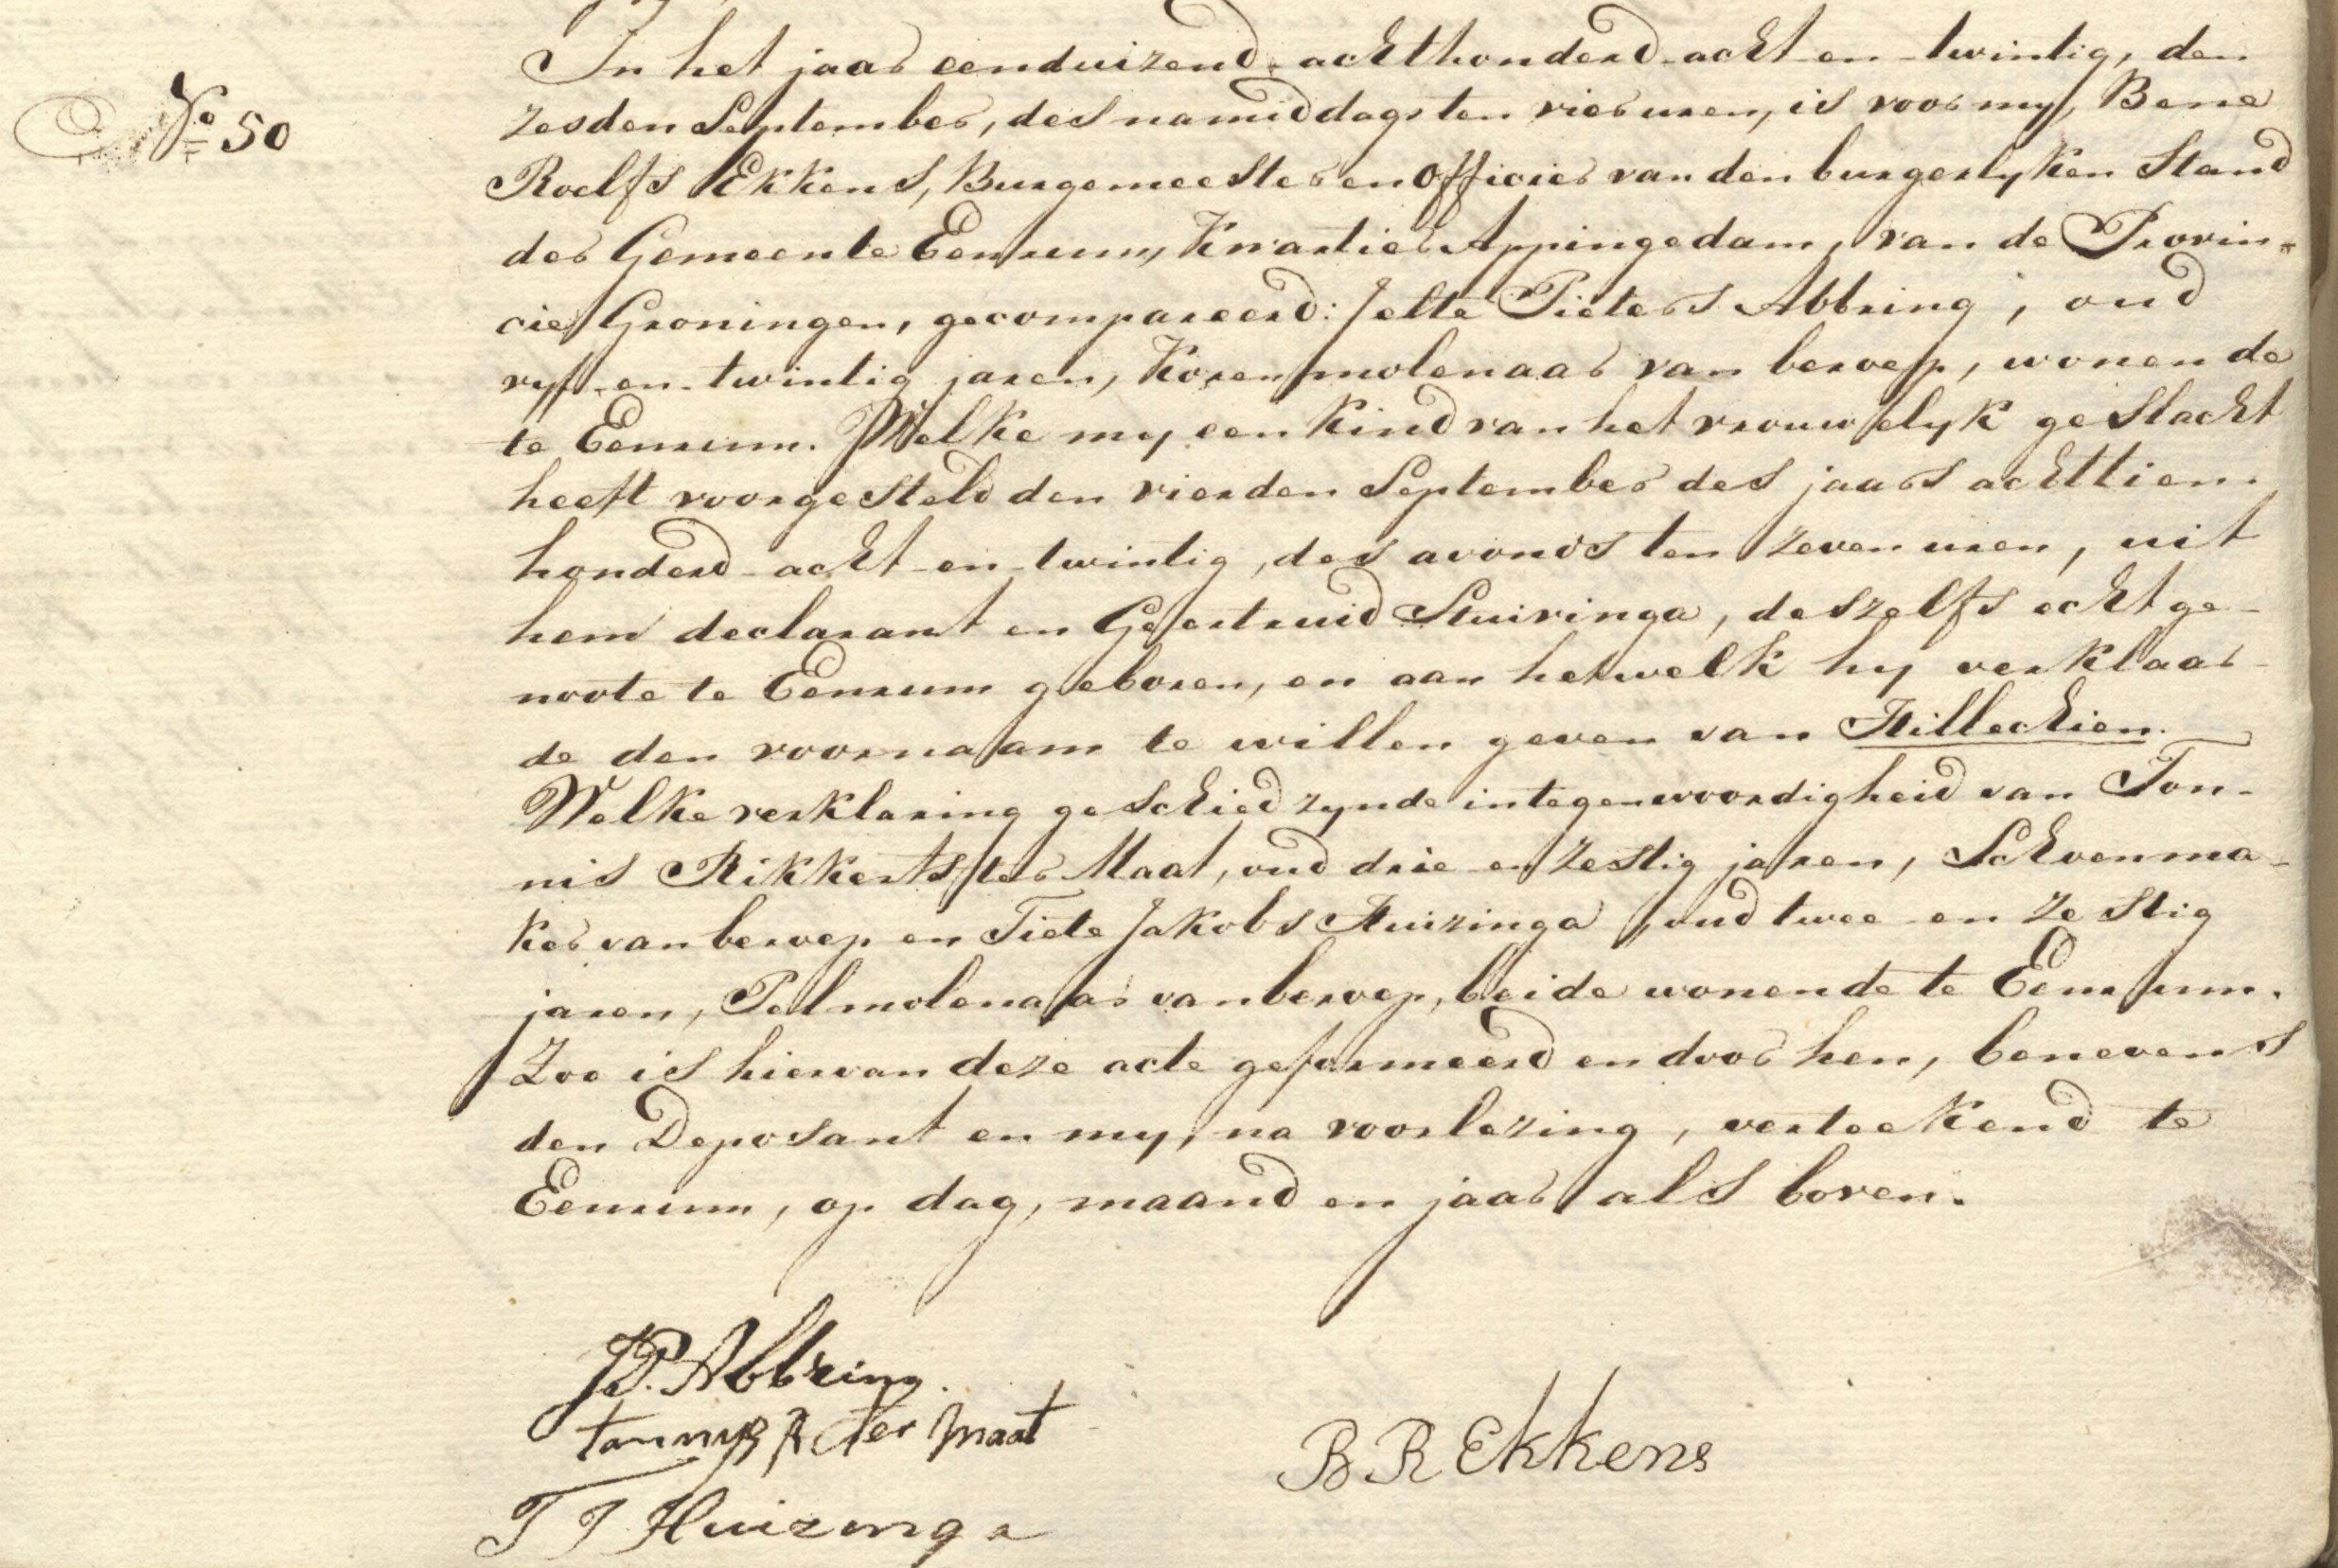 No 50
In het jaar eenduizend-achthonderd-acht-en-twintig, den
zesden September, des namiddags ten vier uren, is voor my, Bene
Roelfs Ekkens, Burgemeester en Officier van den burgerlyken Stand
der Gemeente Eenrum, Kwartier Appingedam, van de Provin=
cie Groningen, gecompareerd: Jelte Pieters Abbring, oud
vyf-en-twintig jaren, Korenmolenaar van beroep, wonende
te Eenrum. Welke my een kind van het vrouwelyk geslacht
heeft voorgesteld den vierden September des jaars achttien-
honderd-acht-en-twintig, des avonds ten zeven uren, uit
hem declarant en Geertruid Stuivinga, deszelfs echtge-
noote te Eenrum geboren, en aan hetwelk hy verklaar-
de den voornaam te willen geven van Hillechien.
Welke verklaring geschied zynde in tegenwoordigheid van Ton-
nis Rikkerts ter Maat, oud drie en zestig jaren, Schoenma-
ker van beroep en Tiete Jakobs Huizinga, oud twee en zestig
jaren, Pelmolenaar van beroep, beide wonende te Eenrum.
Zoo is hiervan deze acte geformeerd en door hen, benevens
den Deposant en my, na voorlezing, verteekend te
Eenrum, op dag, maand en jaar als boven.
J.P. Abbring.
tonnys R ter maat
B R Ekkens
T J Huizinga